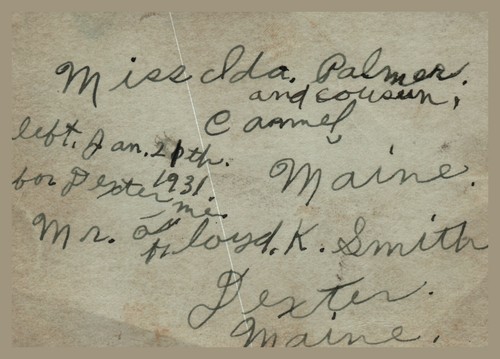 Miss Ida. Palmer.
and cousin,
Carmel,
left. Jan. 21th.
1931
for Dexter me.
Maine.
Mr. Floyd. K. Smith
Dexter.
Maine.